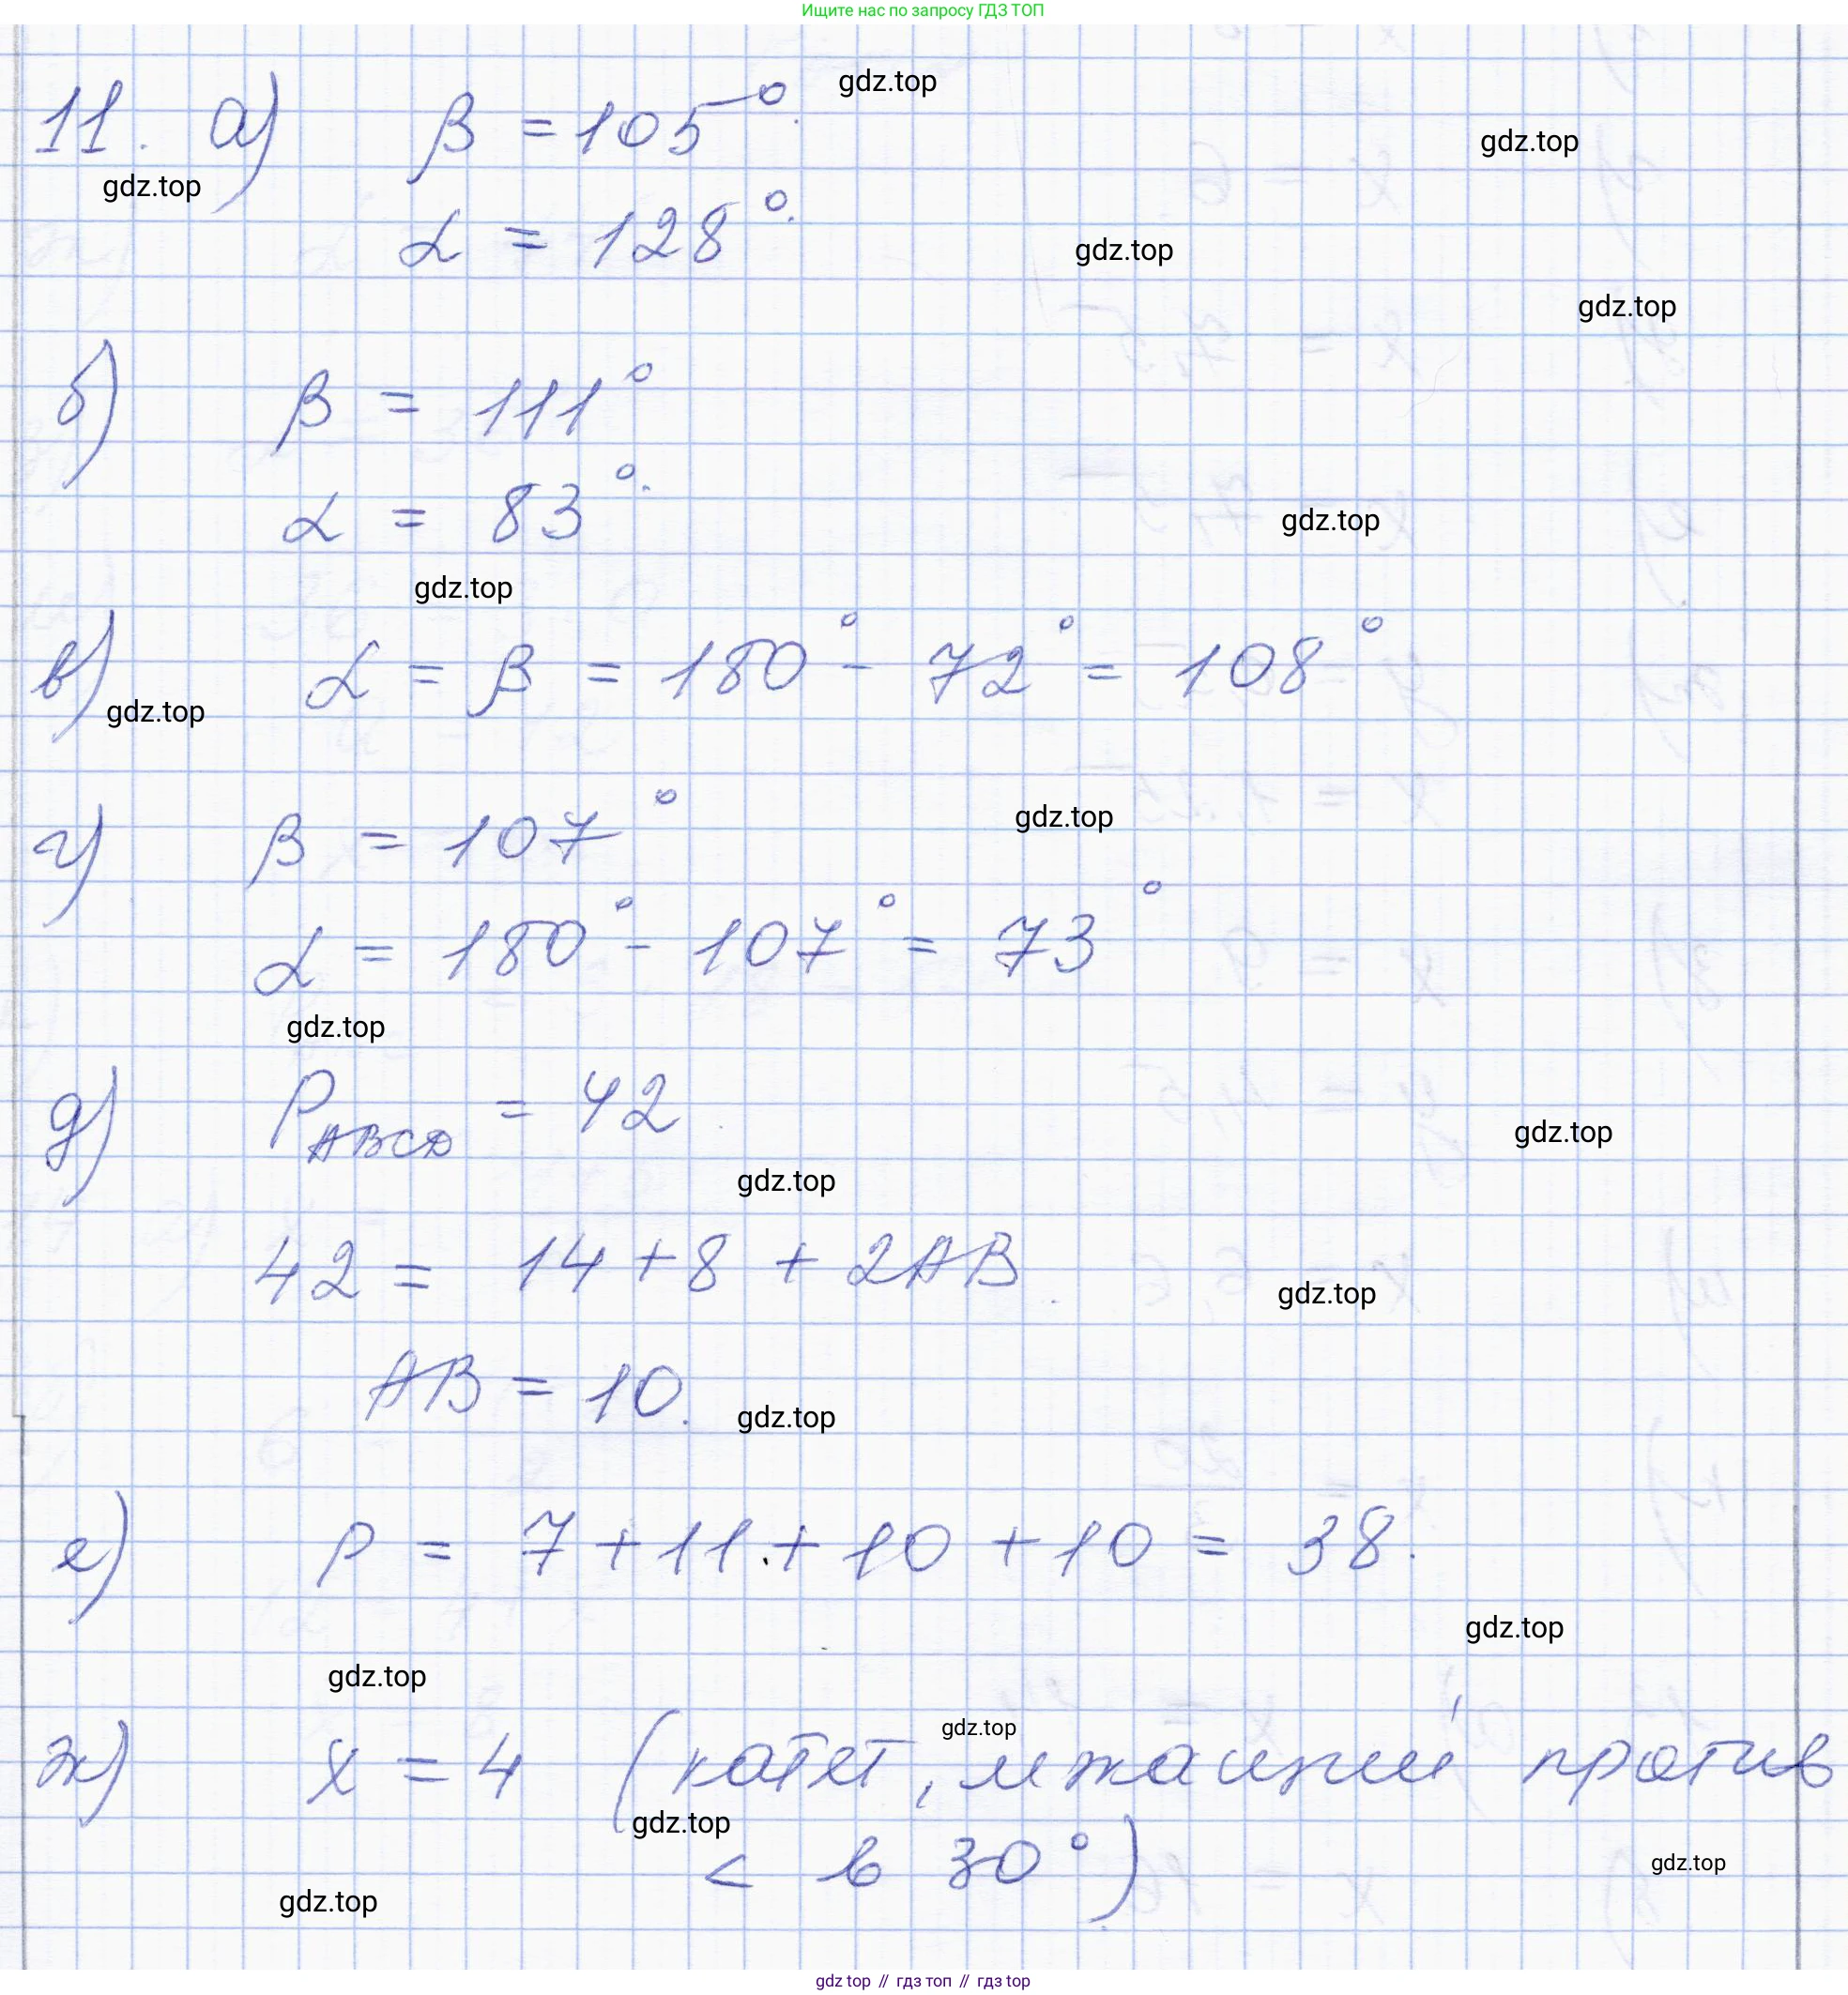 Ищите нас по запросу ГДЗ ТОП
11. а) β = 105°.
gdz.top
gdz.top
gdz.top
α = 128°.
gdz.top
gdz.top
б) β = 111°
α = 83°.
gdz.top
gdz.top
в) α = β = 180° - 72° = 108°
gdz.top
г) β = 107°
gdz.top
α = 180° - 107° = 73°
gdz.top
д) P ABCD = 42
gdz.top
gdz.top
42 = 14 + 8 + 2AB
gdz.top
AB = 10.
gdz.top
е) P = 7 + 11 + 10 + 10 = 38.
gdz.top
gdz.top
gdz.top
ж) x = 4 (катет, лежащий против
gdz.top
< в 30°)
gdz.top
gdz.top
gdz top // гдз топ // гдз top